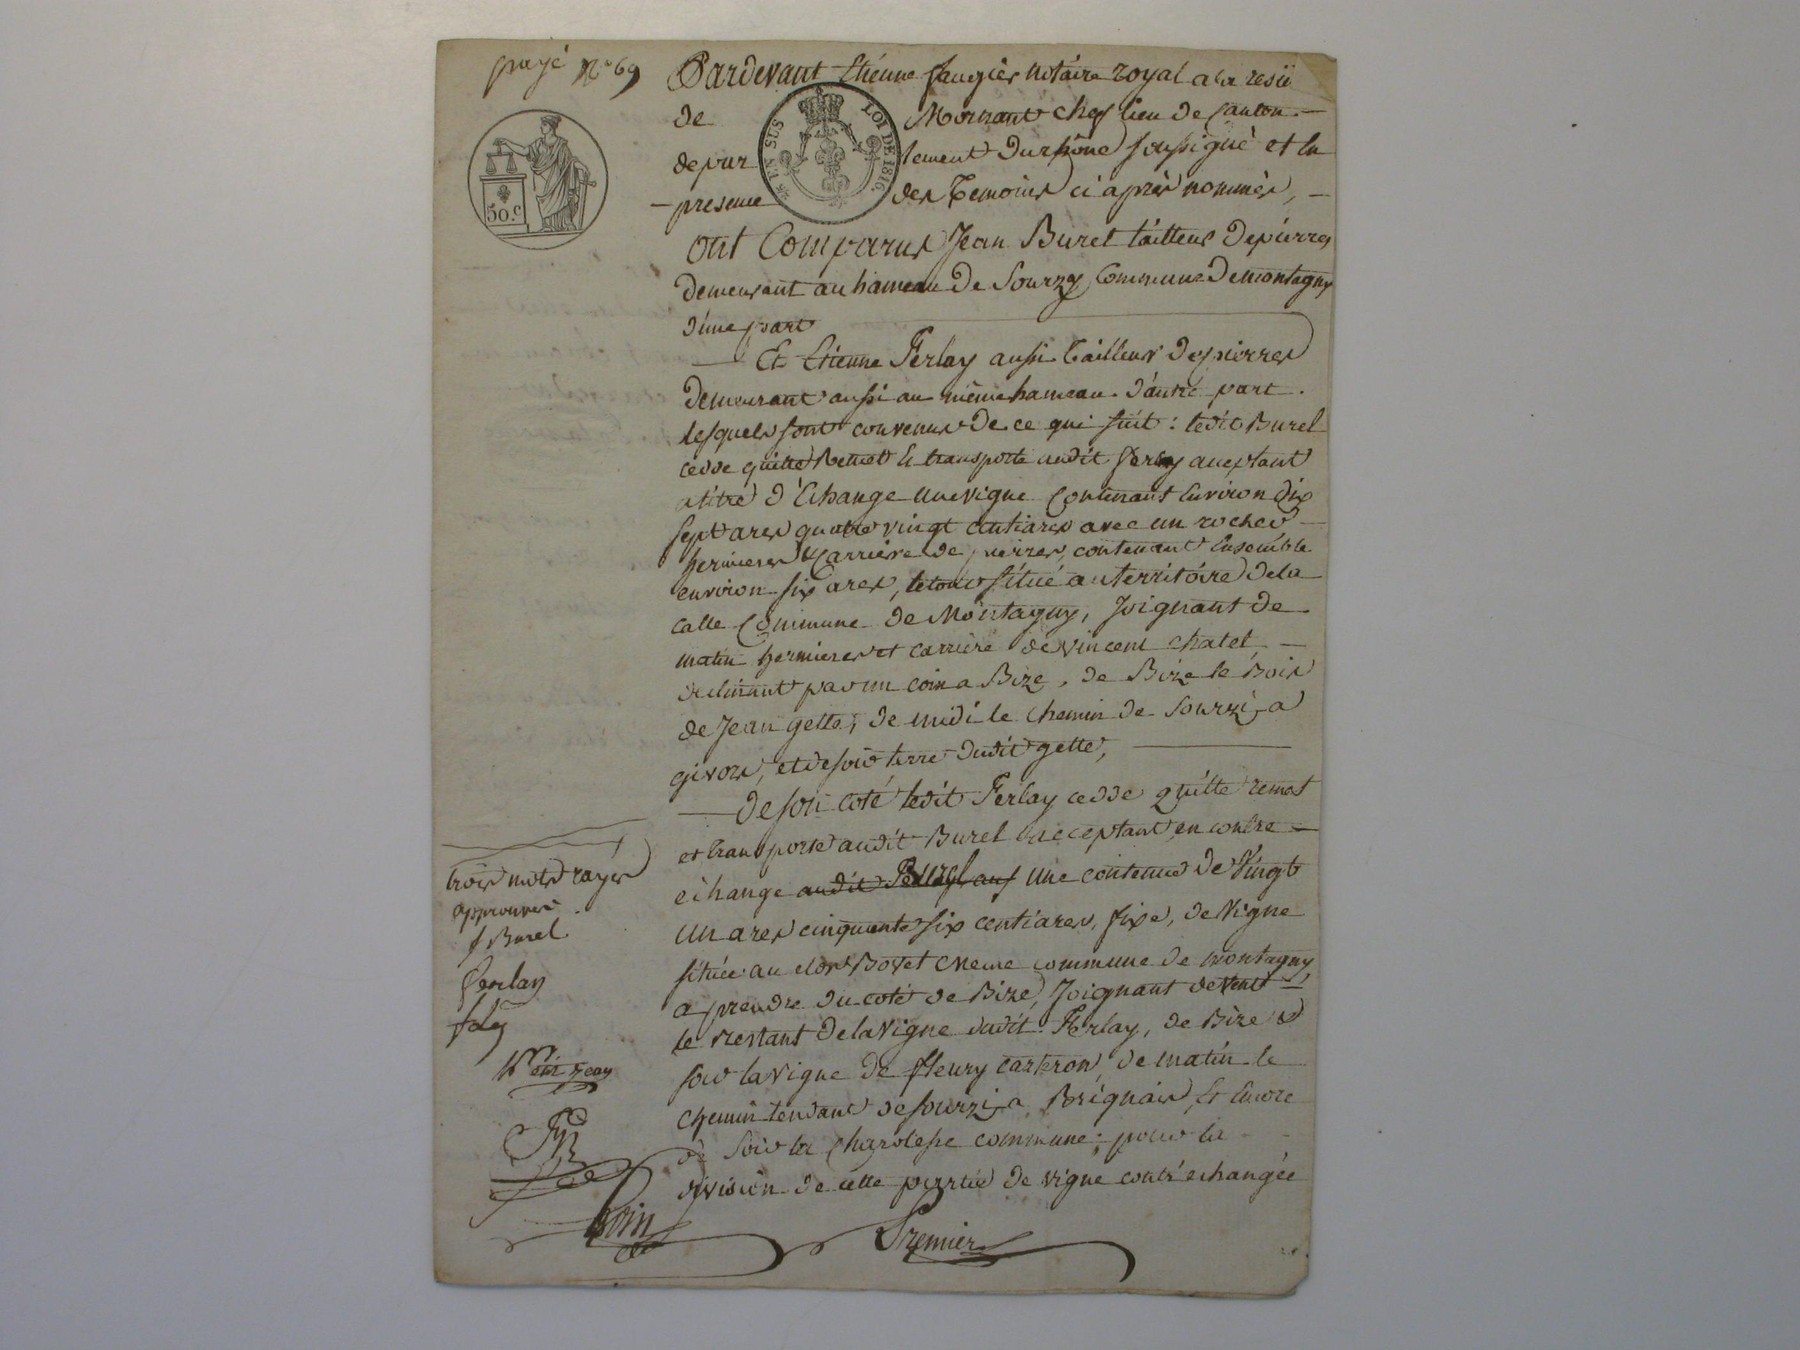 payé No 69
Pardevant Etienne faugier notaire royal a la resi
de Mornant chef lieu de Canton
depar tement du rhône soussigné et en
presence des Temoins ci après nommés,
50.c
EN SUS LOI DE 1816.
Ont Comparus Jean Burel tailleur de pierres
demeurant au hameau de Sourzy Commune de montagny
d'une part
Et Etienne Ferlay aussi tailleur de pierres
demeurant aussi au même hameau d'autre part.
lesquels sont convenus de ce qui suit : ledit Burel
cedde quitte Remet et transporte audit ferlay acceptant
a titre d'échange une vigne Contenant environ dix
sept ares quatre vingt centiares avec un rocher
hermieres & Carrière de pierres, contenant ensemble
environ six ares, le tout situé au territoire de la
calle Commune de Montagny, Joignant de
matin hermieres et carrière de vincent chatel
declinant par un coin a Bize, de Bize le Bois
de Jean gette, de midi le chemin de Sourzi a
givors, et de soir terre dudit gette,
de son coté ledit Ferlay cedde quitte remet
et transporte audit Burel acceptant en contre
échange audit une contenue de Vingt
un ares cinquante six centiares, fixe, de Vigne
située au clos Bovet meme commune de montagny
a prendre du coté de Bize, Joignant de vent
le restant de la Vigne dudit Ferlay, de Bize &
soir la vigne de fleury carteron, de matin le
chemin tendant de sourzi a Brignais, Et encore
de Soir la Charolesse commune; pour la
division de cette partie de vigne contr'echangée
trois mots rayés
approuvés
J Burel
Ferlay
Premier